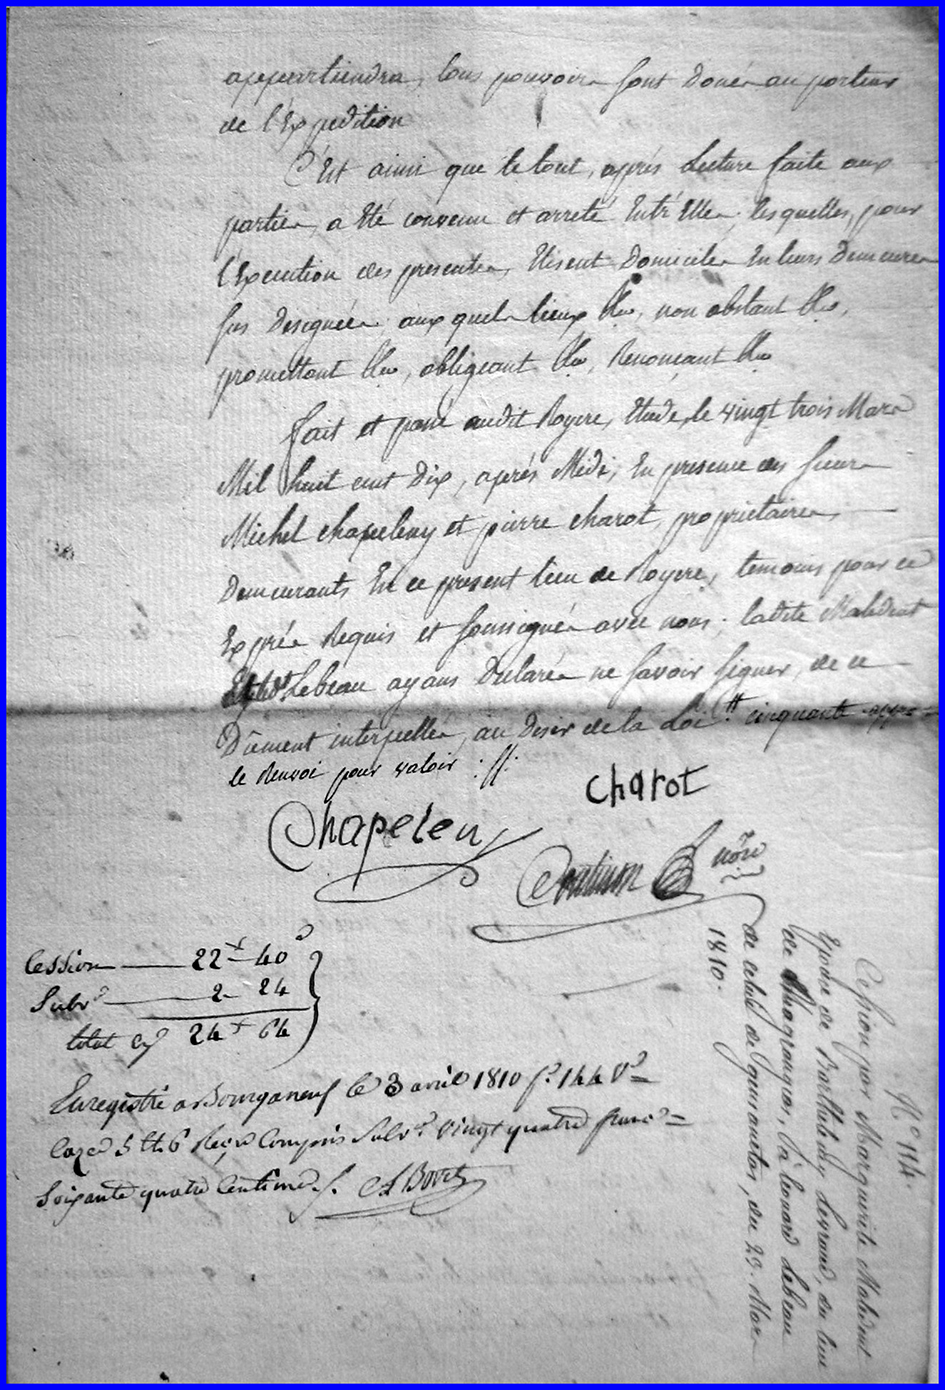 appartiendra, tous pouvoirs sont donés au porteur
de l'Expedition
C'Est ainsi que le tout, après Lecture faite aux
parties, a Eté convenu et arreté Entre Elles; lesquelles, pour
l'Execution des presentes, Elisent Domiciles En leurs Demeures
sus designées auxquels lieux &a, non obstant &a,
promettant &a, obligeant &a, Renonçant &a
fait et passé audit Royere, Etude, le vingt trois Mars
Mil huit cent Dix, après Midi; En presence des sieurs
Michel Chapeleny et pierre charot, proprietaires,
Demeurants En ce present lieu de Royere, temoins pour ce
Exprès Requis et soussignés avec nous; ladite Malident
Lebeau ayans Declarés ne savoir signer, de ce
Dûment interpellés, au Desir de la Loi cinquante
le Renvoi pour valoir
Charot
Chapeleny
nore
Cession 22 40
Subv 2 24
total 24 64
Enregistré a Bourganeuf le 3 avril 1810 f° 144 V°
Caze 5 et 6 Reçu Compris Subv° vingt quatre francs
Soixante quatre Centimes.
N° 114.
Cession par Marguerite Malident
Epouse de Barthelemy Levraud, du lieu
des , à Léonard Lebeau
de celui de , du 23. Mars
1810.